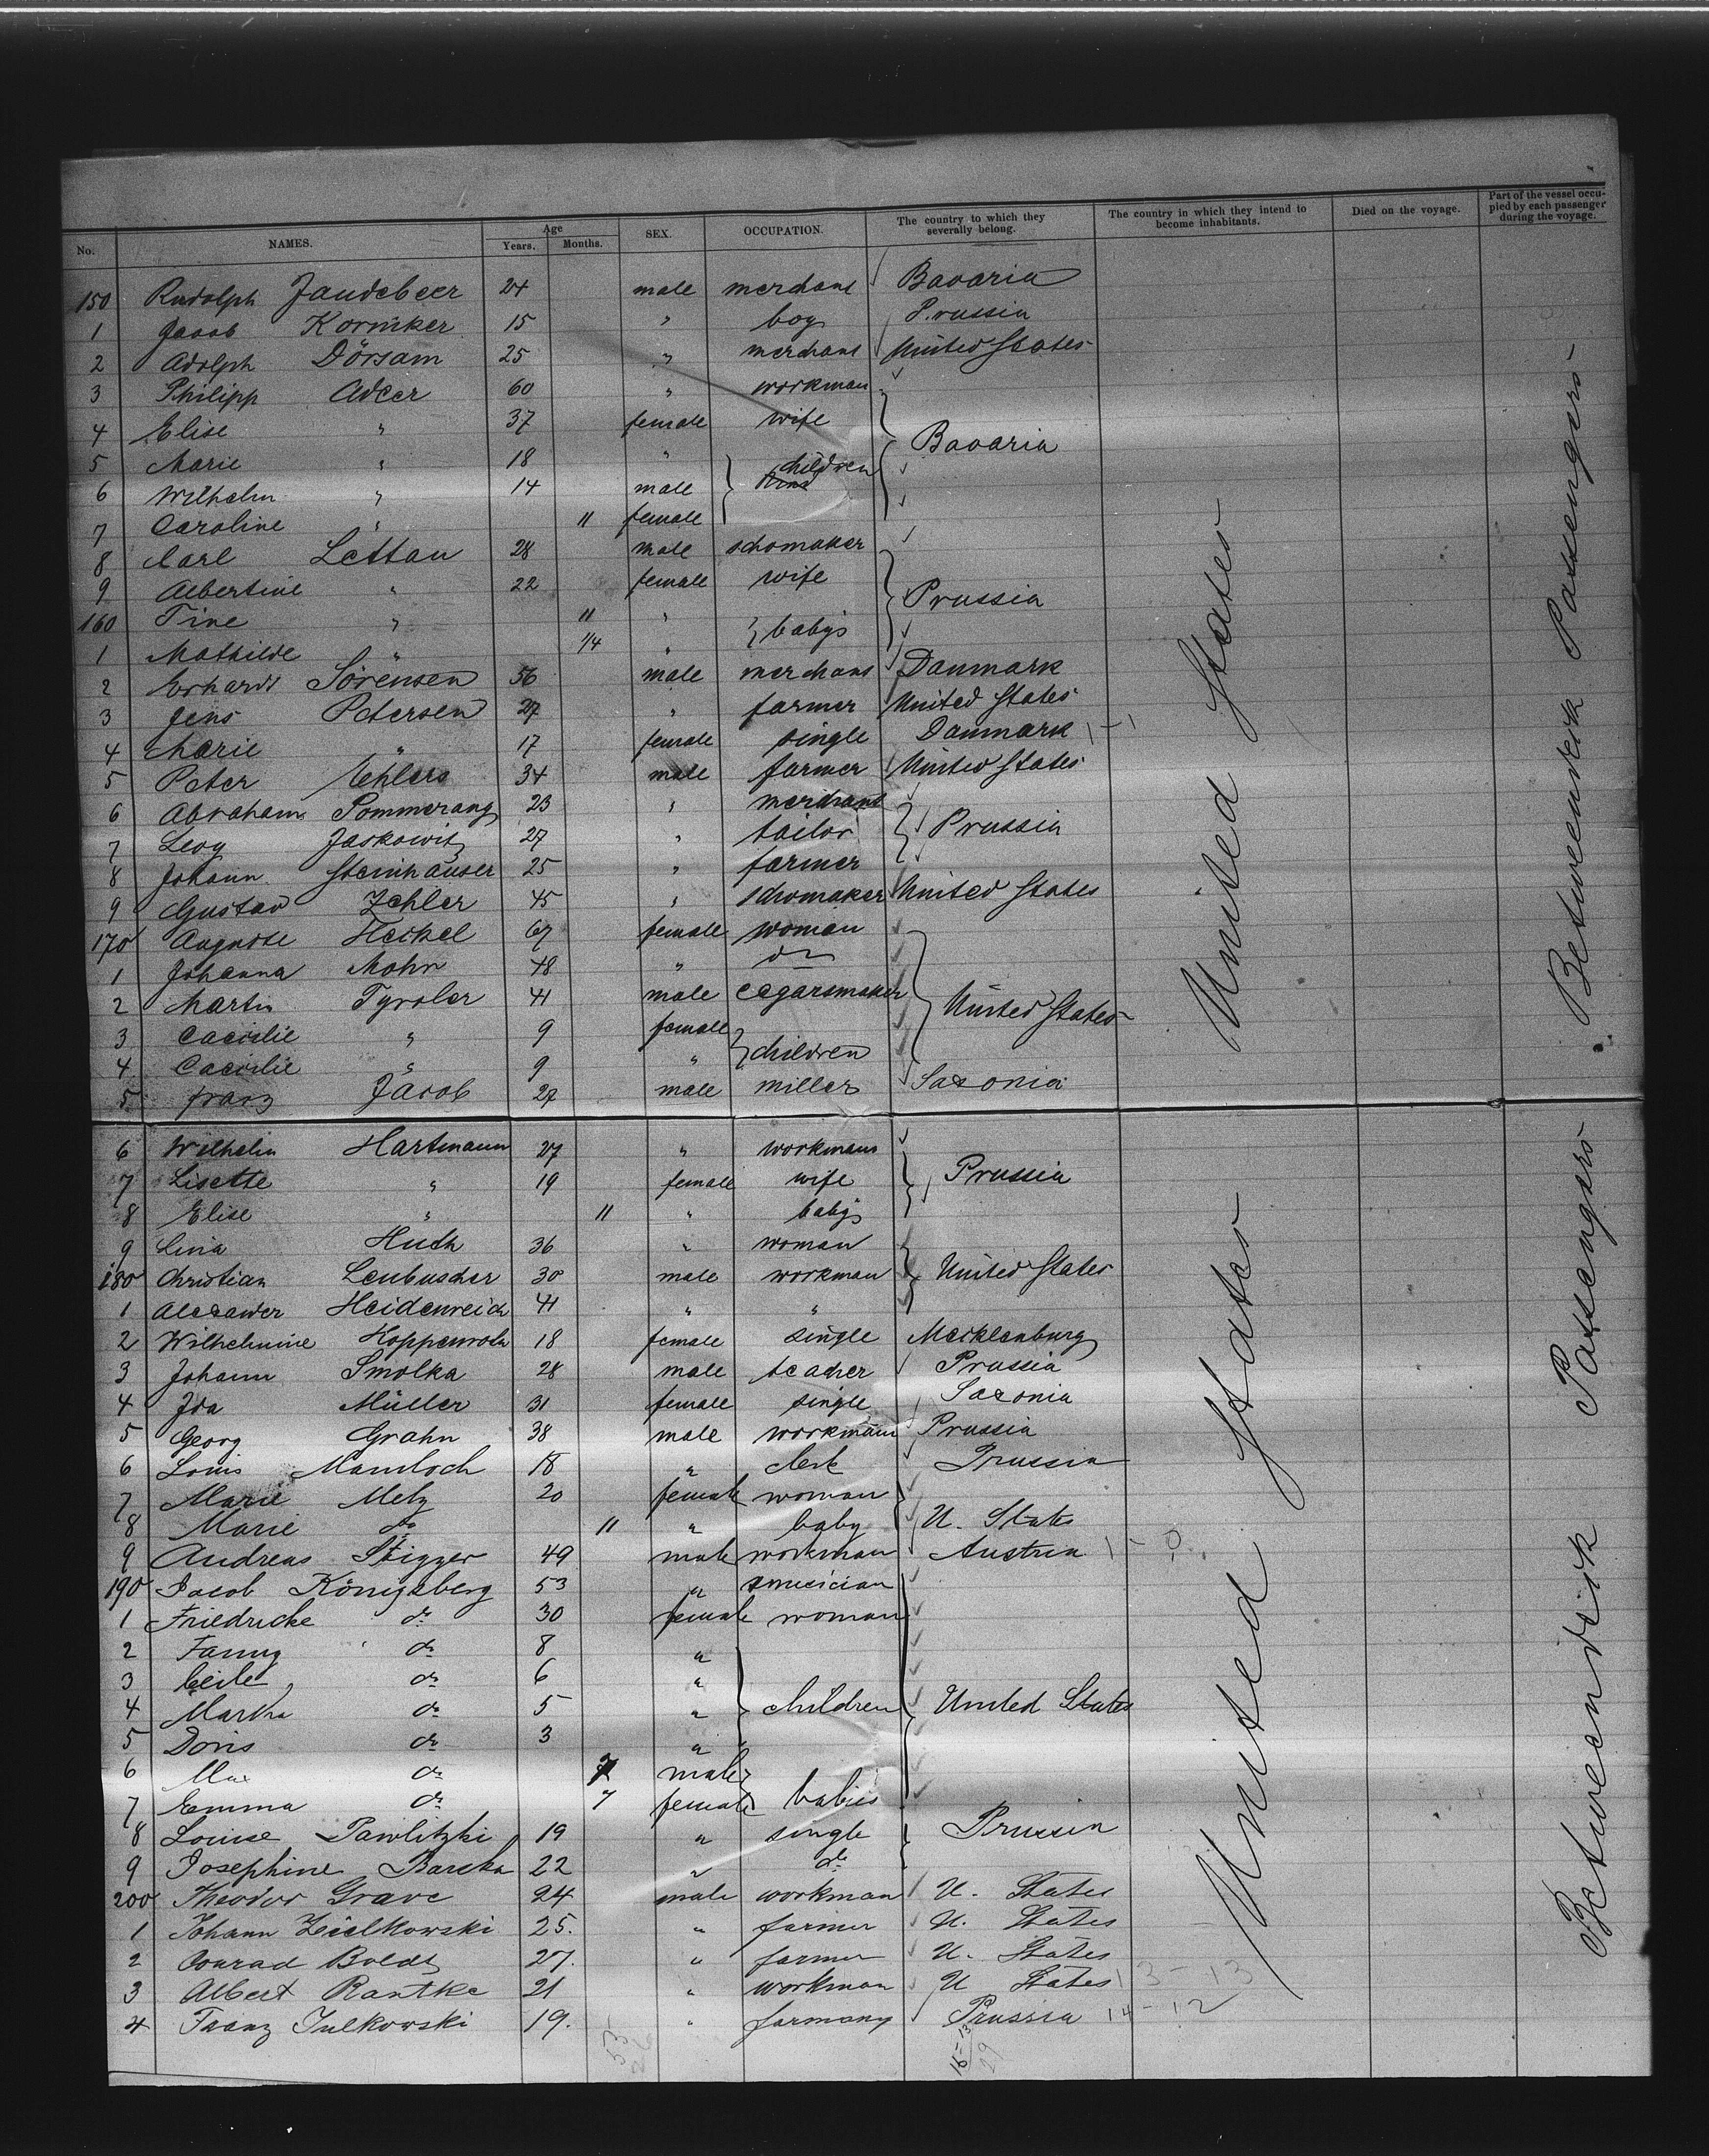 No. NAMES. Age Years. Months. SEX. OCCUPATION. The country to which they severally belong. The country in which they intend to become inhabitants. Died on the voyage. Part of the vessel occupied by each passenger during the voyage.
150 Rudolph Jaudebeer 24 male merchant Bavaria
1 Jacob Korniker 15 " boy Prussia
2 Adolph Dörsam 25 " merchant United States
3 Philipp Adler 60 " workman
4 Elise " 37 female wife
Bavaria
5 Marie " 18 " children
6 Wilhelm " 14 male
7 Caroline " 11 female
8 Carl Lettau 28 male schomaker
9 Albertine " 22 female wife
Prussia
160 Tine " 11 " babys
1 Mathilde " 1/4 "
2 Erhardt Sörensen 56 male merchant Danmark
3 Jens Petersen 27 " farmer United States
4 Marie " 17 female single Danmark
5 Peter Ehlers 34 male farmer United States
6 Abraham Pommeranz 23 " merchant
7 Levy Jaskowitz 27 " tailor Prussia
8 Johann Steinhäuser 25 " farmer
9 Gustav Zehler 45 " schomaker United States
170 Auguste Heckel 67 female woman
1 Johanna Mohr 48 " do
2 Martin Tyroler 41 male cegarsmaker United States
3 Caecilie " 9 female
4 Caecilie " 9 " children
5 Franz Jacob 27 male miller Saxonia
6 Wilhelm Hartmann 27 " workmans
7 Lisette " 19 female wife Prussia
8 Elise " 11 " babys
9 Lina Huth 36 " woman
180 Christian Leubuscher 30 male workman United States
1 Alexander Heidenreich 41 " "
2 Wilhelmine Koppenroth 18 female single Mecklenburg
3 Johann Smolka 28 male teacher Prussia
4 Ida Müller 31 female single Saxonia
5 Georg Grahn 38 male workmann Prussia
6 Louis Mamloch 18 " clerk Prussia
7 Marie Metz 20 female woman
8 Marie do 11 " baby U. States
9 Andreas Stigger 49 male workman Austria
190 Jacob Königsberg 53 " musician
1 Friedricke do 30 female woman
2 Fanny do 8 "
3 Ceile do 6 "
4 Martha do 5 " children United States
5 Doris do 3 "
6 Max do 7 male
7 Emma do 7 female babies
8 Louise Pawlitzki 19 " single Prussia
9 Josephine Barska 22 " do
200 Theodor Grave 24 male workman U. States
1 Johann Zielkowski 25. " farmer U. States
2 Conrad Boldt 27. " farmer U. States
3 Albert Rantke 21 " workman U States 13-13
4 Franz Julkowski 19. " farmany Prussia 14-12
United States
United States
Betweendeck Passengers
Betweendeck Passengers